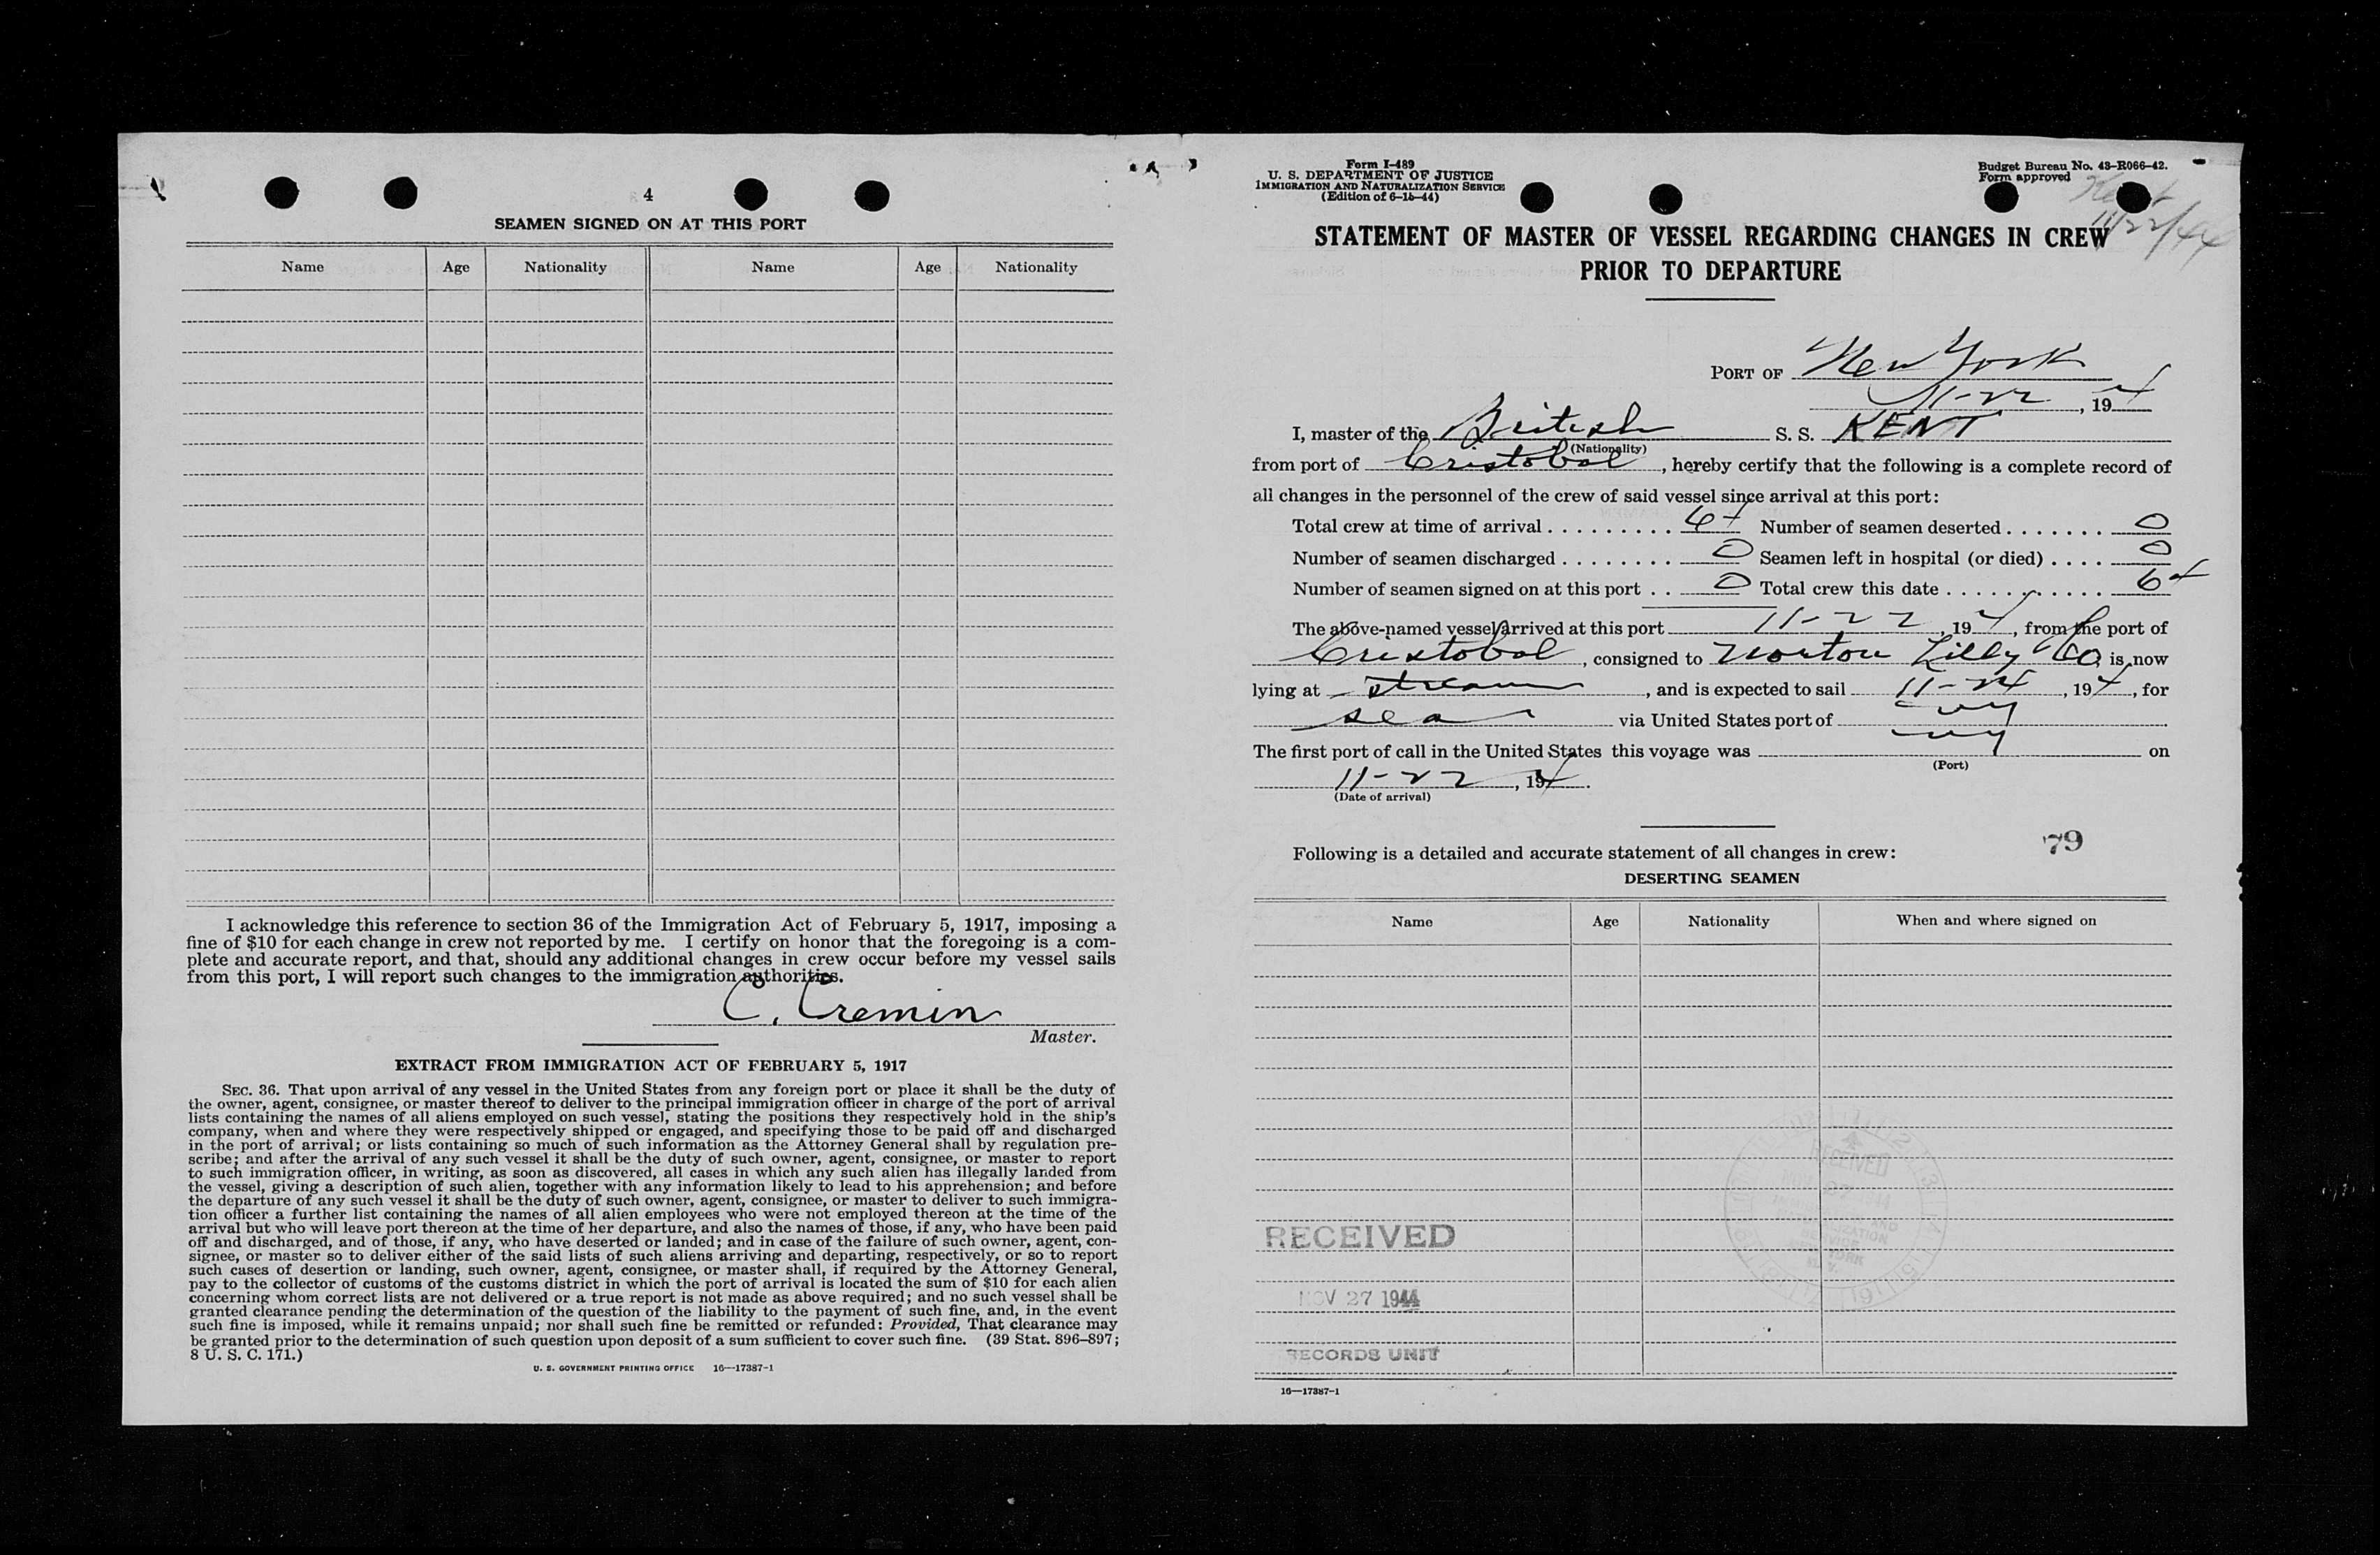 4
SEAMEN SIGNED ON AT THIS PORT
Name Age Nationality Name Age Nationality
I acknowledge this reference to section 36 of the Immigration Act of February 5, 1917, imposing a
fine of $10 for each change in crew not reported by me. I certify on honor that the foregoing is a com-
plete and accurate report, and that, should any additional changes in crew occur before my vessel sails
from this port, I will report such changes to the immigration authorities.
C. Cremin
Master.
EXTRACT FROM IMMIGRATION ACT OF FEBRUARY 5, 1917
SEC. 36. That upon arrival of any vessel in the United States from any foreign port or place it shall be the duty of
the owner, agent, consignee, or master thereof to deliver to the principal immigration officer in charge of the port of arrival
lists containing the names of all aliens employed on such vessel, stating the positions they respectively hold in the ship's
company, when and where they were respectively shipped or engaged, and specifying those to be paid off and discharged
in the port of arrival; or lists containing so much of such information as the Attorney General shall by regulation pre-
scribe; and after the arrival of any such vessel it shall be the duty of such owner, agent, consignee, or master to report
to such immigration officer, in writing, as soon as discovered, all cases in which any such alien has illegally landed from
the vessel, giving a description of such alien, together with any information likely to lead to his apprehension; and before
the departure of any such vessel it shall be the duty of such owner, agent, consignee, or master to deliver to such immigra-
tion officer a further list containing the names of all alien employees who were not employed thereon at the time of the
arrival but who will leave port thereon at the time of her departure, and also the names of those, if any, who have been paid
off and discharged, and of those, if any, who have deserted or landed; and in case of the failure of such owner, agent, con-
signee, or master so to deliver either of the said lists of such aliens arriving and departing, respectively, or so to report
such cases of desertion or landing, such owner, agent, consignee, or master shall, if required by the Attorney General,
pay to the collector of customs of the customs district in which the port of arrival is located the sum of $10 for each alien
concerning whom correct lists are not delivered or a true report is not made as above required; and no such vessel shall be
granted clearance pending the determination of the question of the liability to the payment of such fine, and, in the event
such fine is imposed, while it remains unpaid; nor shall such fine be remitted or refunded: Provided, That clearance may
be granted prior to the determination of such question upon deposit of a sum sufficient to cover such fine. (39 Stat. 896–897;
8 U. S. C. 171.)
U. S. GOVERNMENT PRINTING OFFICE 16—17387-1
Form I-489
U. S. DEPARTMENT OF JUSTICE
IMMIGRATION AND NATURALIZATION SERVICE
(Edition of 6-15-44)
Budget Bureau No. 43-R066-42.
Form approved
Kent
11/22/44
STATEMENT OF MASTER OF VESSEL REGARDING CHANGES IN CREW
PRIOR TO DEPARTURE
PORT OF New York
11-22, 194
I, master of the British S. S. KENT
(Nationality)
from port of Cristobal, hereby certify that the following is a complete record of
all changes in the personnel of the crew of said vessel since arrival at this port:
Total crew at time of arrival 64 Number of seamen deserted 0
Number of seamen discharged 0 Seamen left in hospital (or died) 0
Number of seamen signed on at this port 0 Total crew this date 64
The above-named vessel arrived at this port 11-22, 194, from the port of
Cristobal, consigned to Norton Lilly Co is now
lying at stream, and is expected to sail 11-24, 194, for
sea via United States port of ny
The first port of call in the United States this voyage was ny on
(Port)
11-22, 194.
(Date of arrival)
79
Following is a detailed and accurate statement of all changes in crew:
DESERTING SEAMEN
Name Age Nationality When and where signed on
RECEIVED
NOV 27 1944
RECORDS UNIT
RECEIVED
16—17387-1